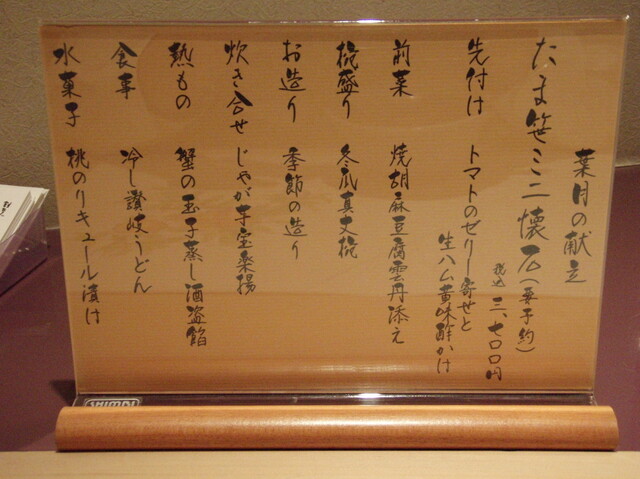 葉月の献立
たま笹ミニ懐石(要予約)
税込 三、七〇〇円
先付け トマトのゼリー寄せと
生ハム黄味酢かけ
前菜 焼胡麻豆腐雲丹添え
椀盛り 冬瓜真丈椀
お造り 季節の造り
炊き合せ じゃが芋宝楽揚
熱もの 蟹の玉子蒸し酒盗餡
食事 冷し讃岐うどん
水菓子 桃のリキュール漬け
SHIMPI